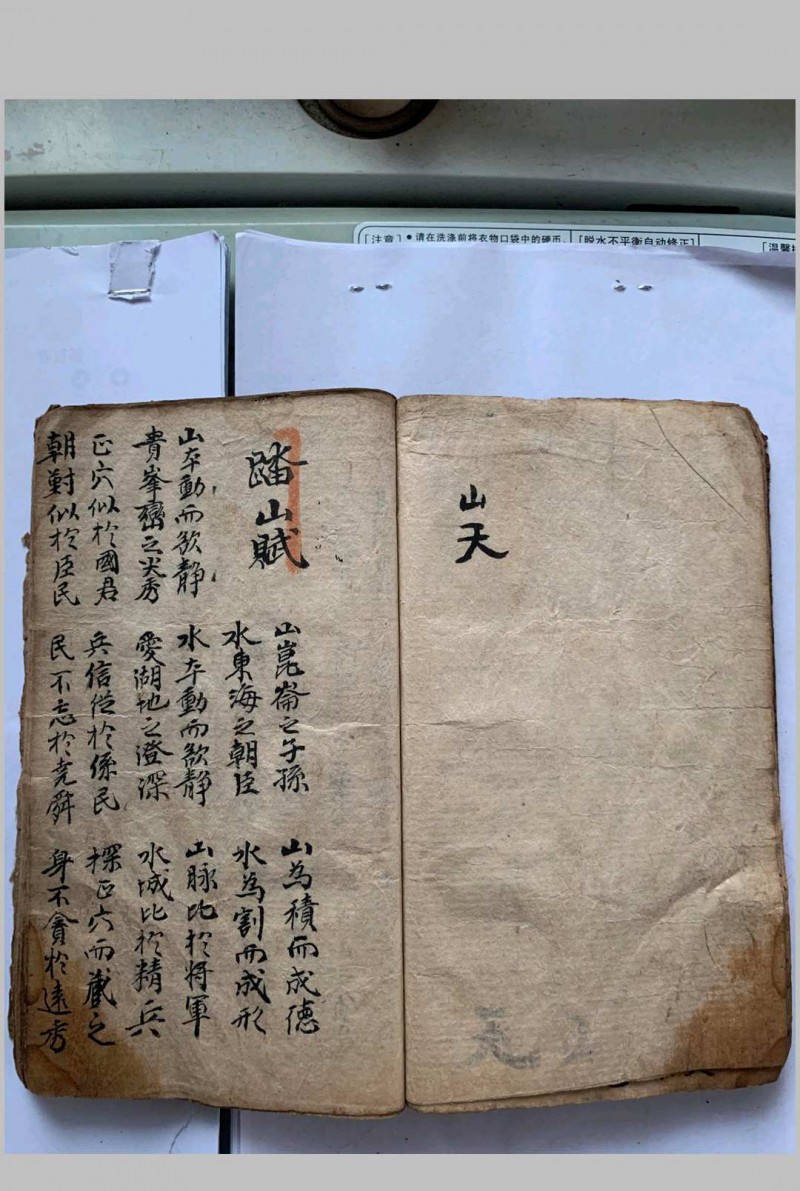 ［注意］● 请在洗涤前将衣物口袋中的硬币、
［脱水不平衡自动修正］
［温馨
山天
踏山賦
山崑崙之子孫 山為積而成德
水東海之朝臣 水為割而成形
山夲動而欲静 水夲動而欲静 山脉比於将軍
貴峯巒之尖秀 愛湖地之澄深 水城比於精兵
正穴似於國君 兵信從於係民 探正穴而藏之
朝對似於臣民 民不忘於尭舜 身不貪於遠